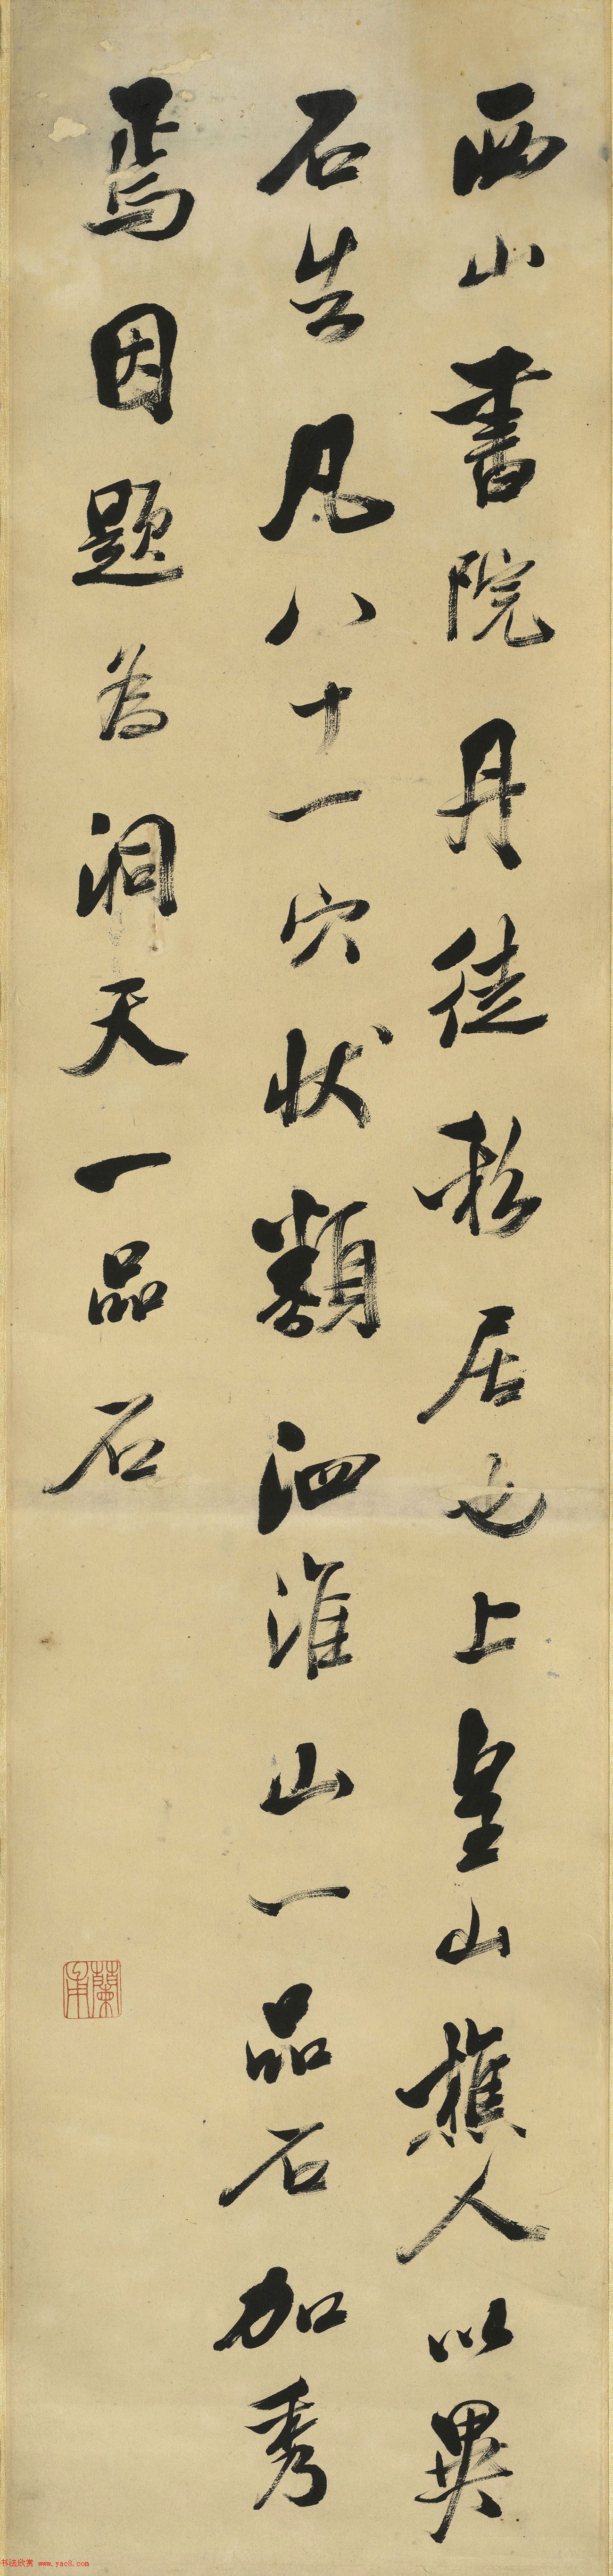 西山書院丹徒私居也上皇山樵人以異
石告凡八十一穴狀類泗淮山一品石加秀
焉因題為洞天一品石
蘭甫
书法欣赏 www.yac8.com